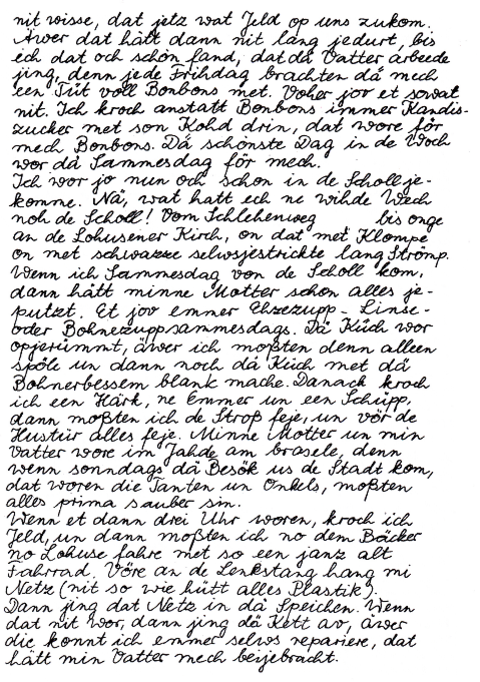 nit wisse, dat jetz wat Jeld op uns zukom.
Awer dat hätt dann nit lang jedurt, bis
ech dat och schön fand, dat dä Vatter arbeede
jing, denn jede Frihdag brachten dä mech
een Tüt voll Bonbons met. Voher jov et sowat
nit. Ich kroch anstatt Bonbons immer Kandis-
zucker met son Kohd drin, dat wore för
mech Bonbons. Dä schönste Dag in de Woch
wor dä Sammesdag för mech.
Ich wor jo nun och schon in de Scholl je-
komme. Nä, wat hatt ech ne wihde Wech
noh de Scholl! Vom Schlehenweg bis onge
an de Lohusener Kirch, on dat met Klompe
on met schwazze selvsjestrickte lang Strömp.
Wenn ich Sammesdag von de Scholl kom,
dann hätt minne Motter schon alles je-
putzet. Et jov emner Ehzezupp- Linse-
oder Bohnezuppsammesdags. Dä Küch wor
opjerümmt, äwer ich moßten denn alleen
spöle un dann noch dä Küch met dä
Bohnerbessem blank mache. Danach kroch
ich een Härk, ne Emmer un een Schüpp,
dann moßten ich de Stroß feje, un vör de
Hustür alles feje. Minne Motter un min
Vatter wore im Jahde am brasele, denn
wenn sonndags dä Besök us de Stadt kom,
dat woren die Tanten un Onkels, moßten
alles prima sauber sin.
Wenn et dann drei Uhr woren, kroch ich
Jeld, un dann moßten ich no dem Bäcker
no Lohuse fahre met so een janz alt
Fahrrad. Vöre an de Lenkstang hang mi
Netz (nit so wie hütt alles Plastik).
Dann jing dat Netz in dä Speichen. Wenn
dat nit wor, dann jing dä Kett av, äwer
die konnt ich emmer selvs repariere, dat
hätt min Vatter mech beijebracht.